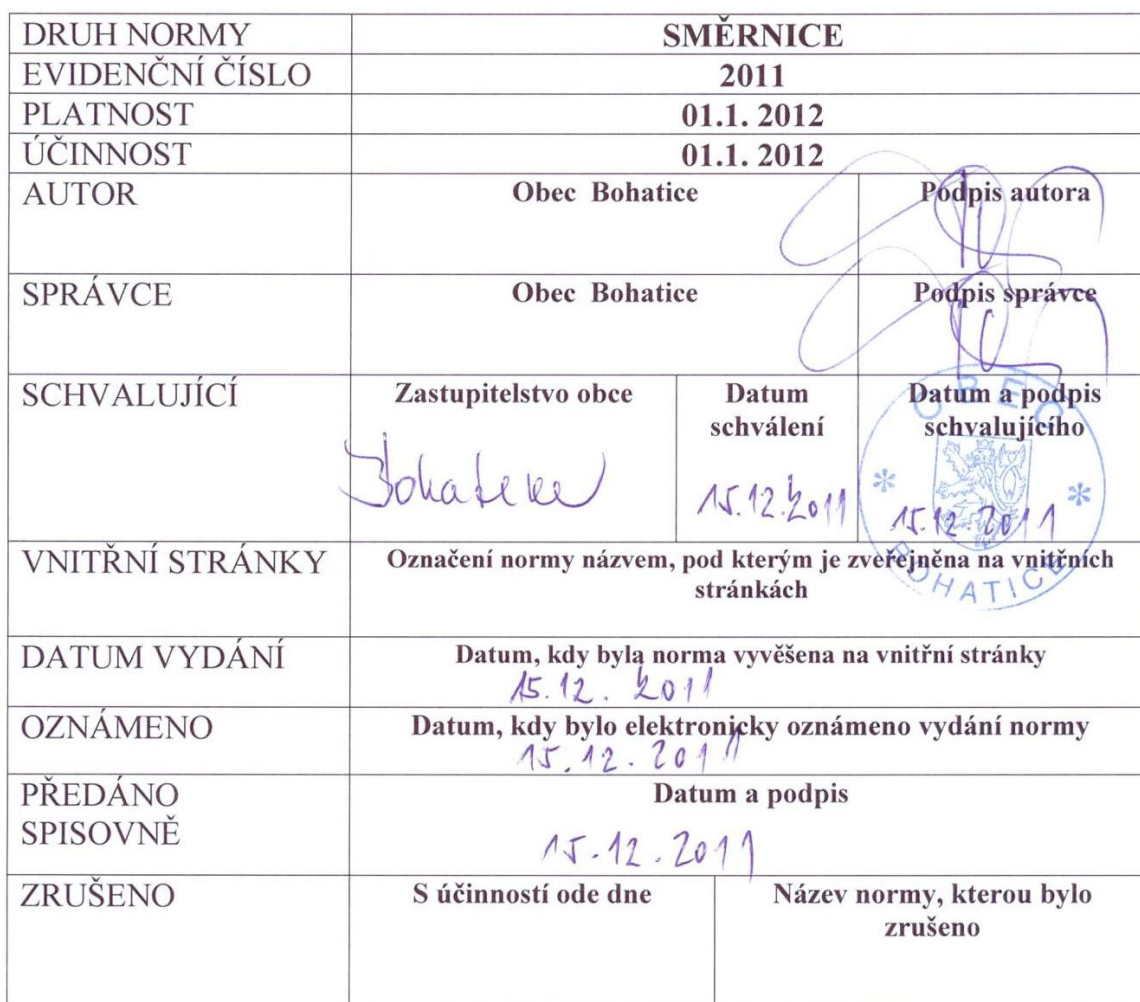 DRUH NORMY SMĚRNICE
EVIDENČNÍ ČÍSLO 2011
PLATNOST 01.1. 2012
ÚČINNOST 01.1. 2012
AUTOR Obec Bohatice Podpis autora
SPRÁVCE Obec Bohatice Podpis správce
SCHVALUJÍCÍ Zastupitelstvo obce Datum Datum a podpis
schválení schvalujícího
OBEC
Bohatice 15.12.2011 15.12.2011
BOHATICE
VNITŘNÍ STRÁNKY Označení normy názvem, pod kterým je zveřejněna na vnitřních
stránkách
DATUM VYDÁNÍ Datum, kdy byla norma vyvěšena na vnitřní stránky
15.12. 2011
OZNÁMENO Datum, kdy bylo elektronicky oznámeno vydání normy
15.12. 2011
PŘEDÁNO Datum a podpis
SPISOVNĚ
15.12.2011
ZRUŠENO S účinností ode dne Název normy, kterou bylo
zrušeno